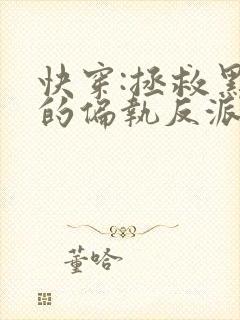 快穿:拯救黑
的偏执反派
董哈